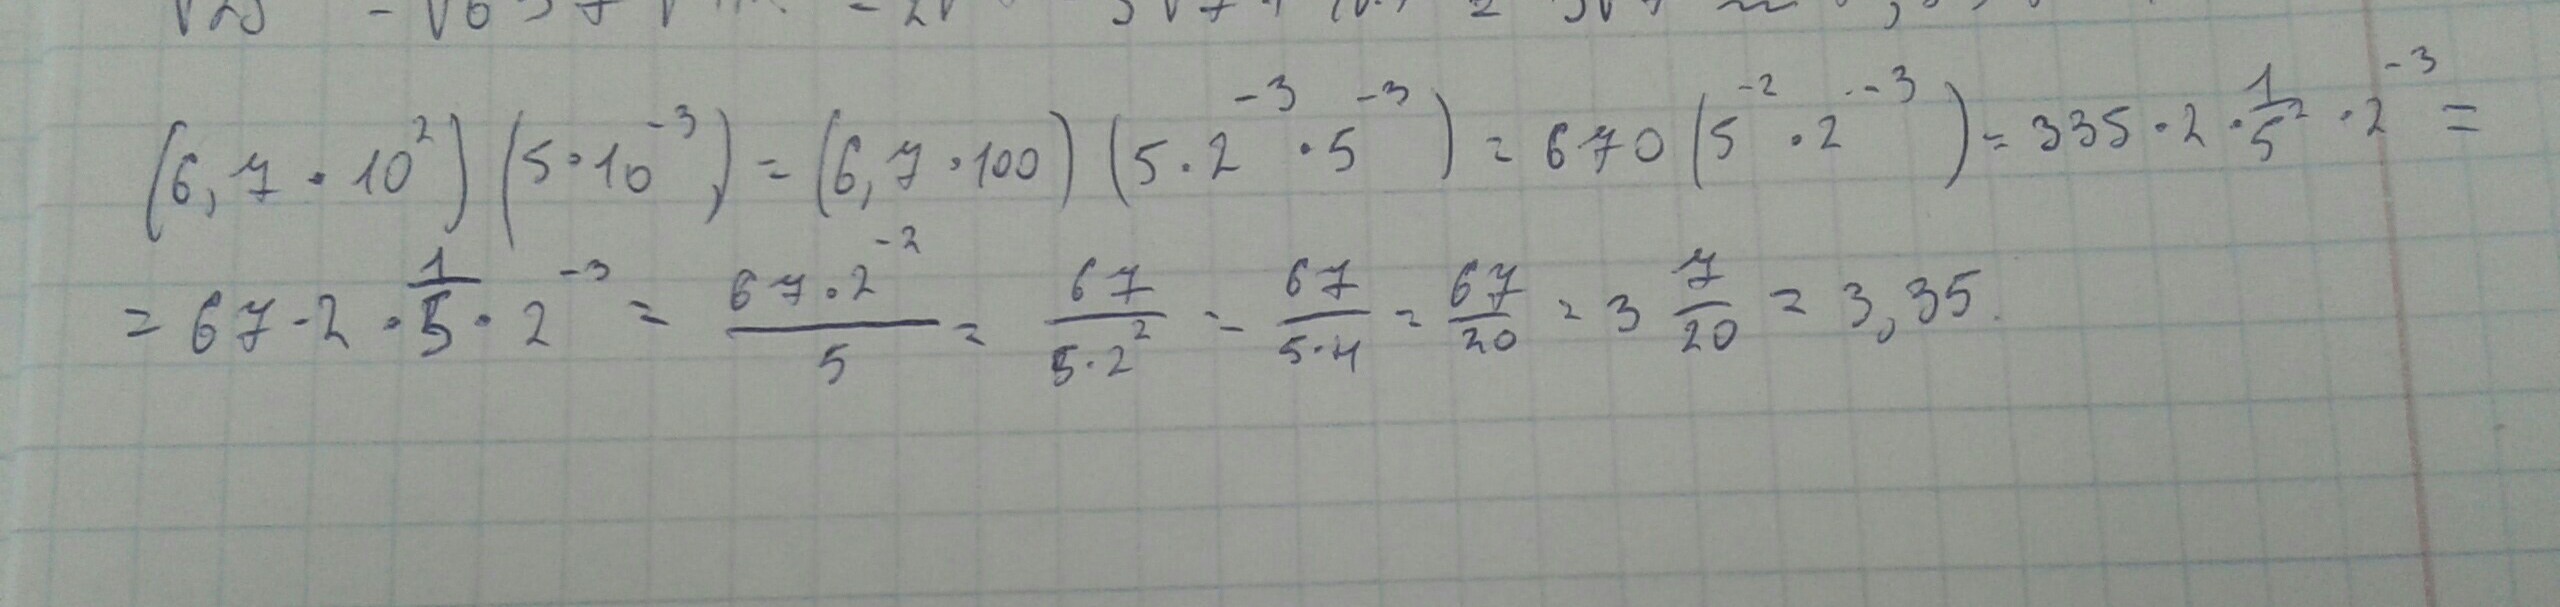 (6,7 · 10²)(5·10⁻³) = (6,7·100)(5·2⁻³·5⁻³) = 670(5⁻²·2⁻³) = 335·2·1/5²·2⁻³ =
= 67·2·1/5·2⁻³ = 67·2⁻²/5 = 67/5·2² = 67/5·4 = 67/20 = 3 7/20 = 3,35.